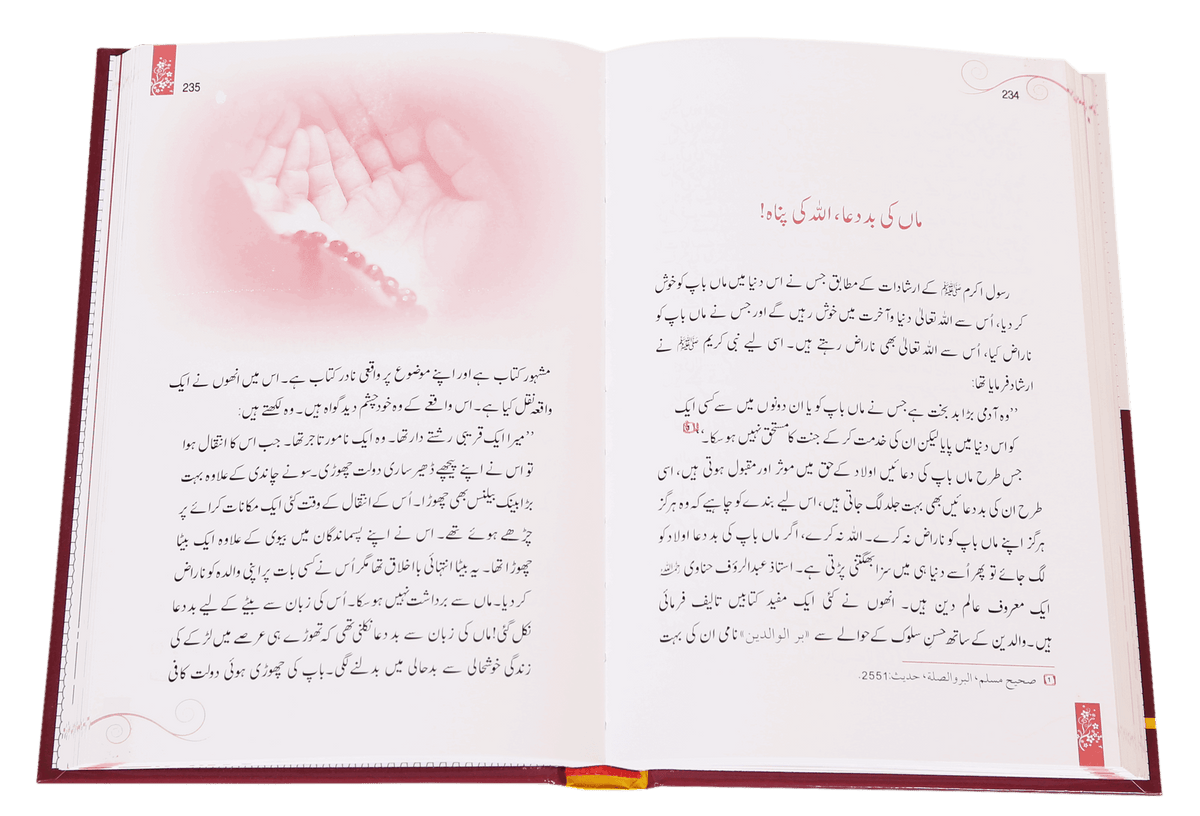 234
ماں کی بد دعا، اللہ کی پناہ!
رسول اکرم ﷺ کے ارشادات کے مطابق جس نے اس دنیا میں ماں باپ کو خوش
کر دیا، اُس سے اللہ تعالیٰ دنیا وآخرت میں خوش رہیں گے اور جس نے ماں باپ کو
ناراض کیا، اُس سے اللہ تعالیٰ بھی ناراض رہتے ہیں۔ اسی لیے نبی کریم ﷺ نے
ارشاد فرمایا تھا:
’’وہ آدمی بڑا بد بخت ہے جس نے ماں باپ کو یا ان دونوں میں سے کسی ایک
کو اس دنیا میں پایا لیکن ان کی خدمت کر کے جنت کا مستحق نہیں ہو سکا۔‘‘
جس طرح ماں باپ کی دعائیں اولاد کے حق میں موثر اور مقبول ہوتی ہیں، اسی
طرح ان کی بد دعائیں بھی بہت جلد لگ جاتی ہیں، اس لیے بندے کو چاہیے کہ وہ ہرگز
ہرگز اپنے ماں باپ کو ناراض نہ کرے۔ اللہ نہ کرے، اگر ماں باپ کی بد دعا اولاد کو
لگ جائے تو پھر اُسے دنیا ہی میں سزا بھگتنی پڑتی ہے۔ استاذ عبدالرؤف حناوی رحمہ اللہ
ایک معروف عالم دین ہیں۔ انھوں نے کئی ایک مفید کتابیں تالیف فرمائی
ہیں۔ والدین کے ساتھ حسنِ سلوک کے حوالے سے «بر الوالدين» نامی ان کی بہت
صحیح مسلم، البر والصلة، حدیث:2551.
235
مشہور کتاب ہے اور اپنے موضوع پر واقعی نادر کتاب ہے۔ اس میں انھوں نے ایک
واقعہ نقل کیا ہے۔ اس واقعے کے وہ خود چشم دید گواہ ہیں۔ وہ لکھتے ہیں:
’’میرا ایک قریبی رشتے دار تھا۔ وہ ایک نامور تاجر تھا۔ جب اس کا انتقال ہوا
تو اس نے اپنے پیچھے ڈھیر ساری دولت چھوڑی۔ سونے چاندی کے علاوہ بہت
بڑا بینک بیلنس بھی چھوڑا۔ اُس کے انتقال کے وقت کئی ایک مکانات کرائے پر
چڑھے ہوئے تھے۔ اس نے اپنے پسماندگان میں بیوی کے علاوہ ایک بیٹا
چھوڑا تھا۔ یہ بیٹا انتہائی با اخلاق تھا مگر اُس نے کسی بات پر اپنی والدہ کو ناراض
کر دیا۔ ماں سے برداشت نہیں ہو سکا۔ اُس کی زبان سے بیٹے کے لیے بد دعا
نکل گئی! ماں کی زبان سے بد دعا نکلنی تھی کہ تھوڑے ہی عرصے میں لڑکے کی
زندگی خوشحالی سے بدحالی میں بدلنے لگی۔ باپ کی چھوڑی ہوئی دولت کافی